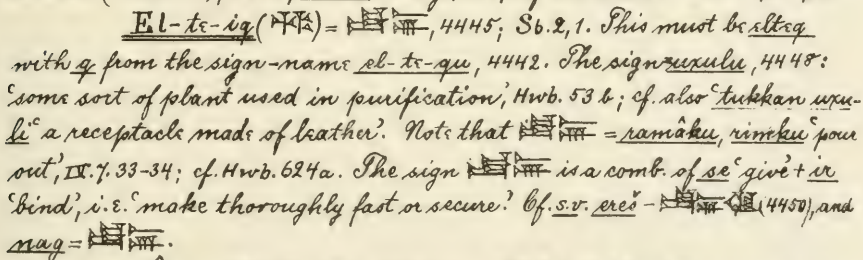 El-te-iq ( ) = , 4445; Sb. 2, 1. This must be elteq
with q from the sign-name el-te-qu, 4442. The sign=uxulu, 4448:
‘some sort of plant used in purification,’ Hwb. 53 b; cf. also ‘tukkan uxu-
li‘ a receptacle made of leather’. Note that = ramâku, rimku ‘pour
out’, IV. 7. 33-34; cf. Hwb. 624a. The sign is a comb. of se ‘give’ + ir
‘bind’, i.e. ‘make thoroughly fast or secure.’ Cf. s.v. ereš - (4450), and
nag = .